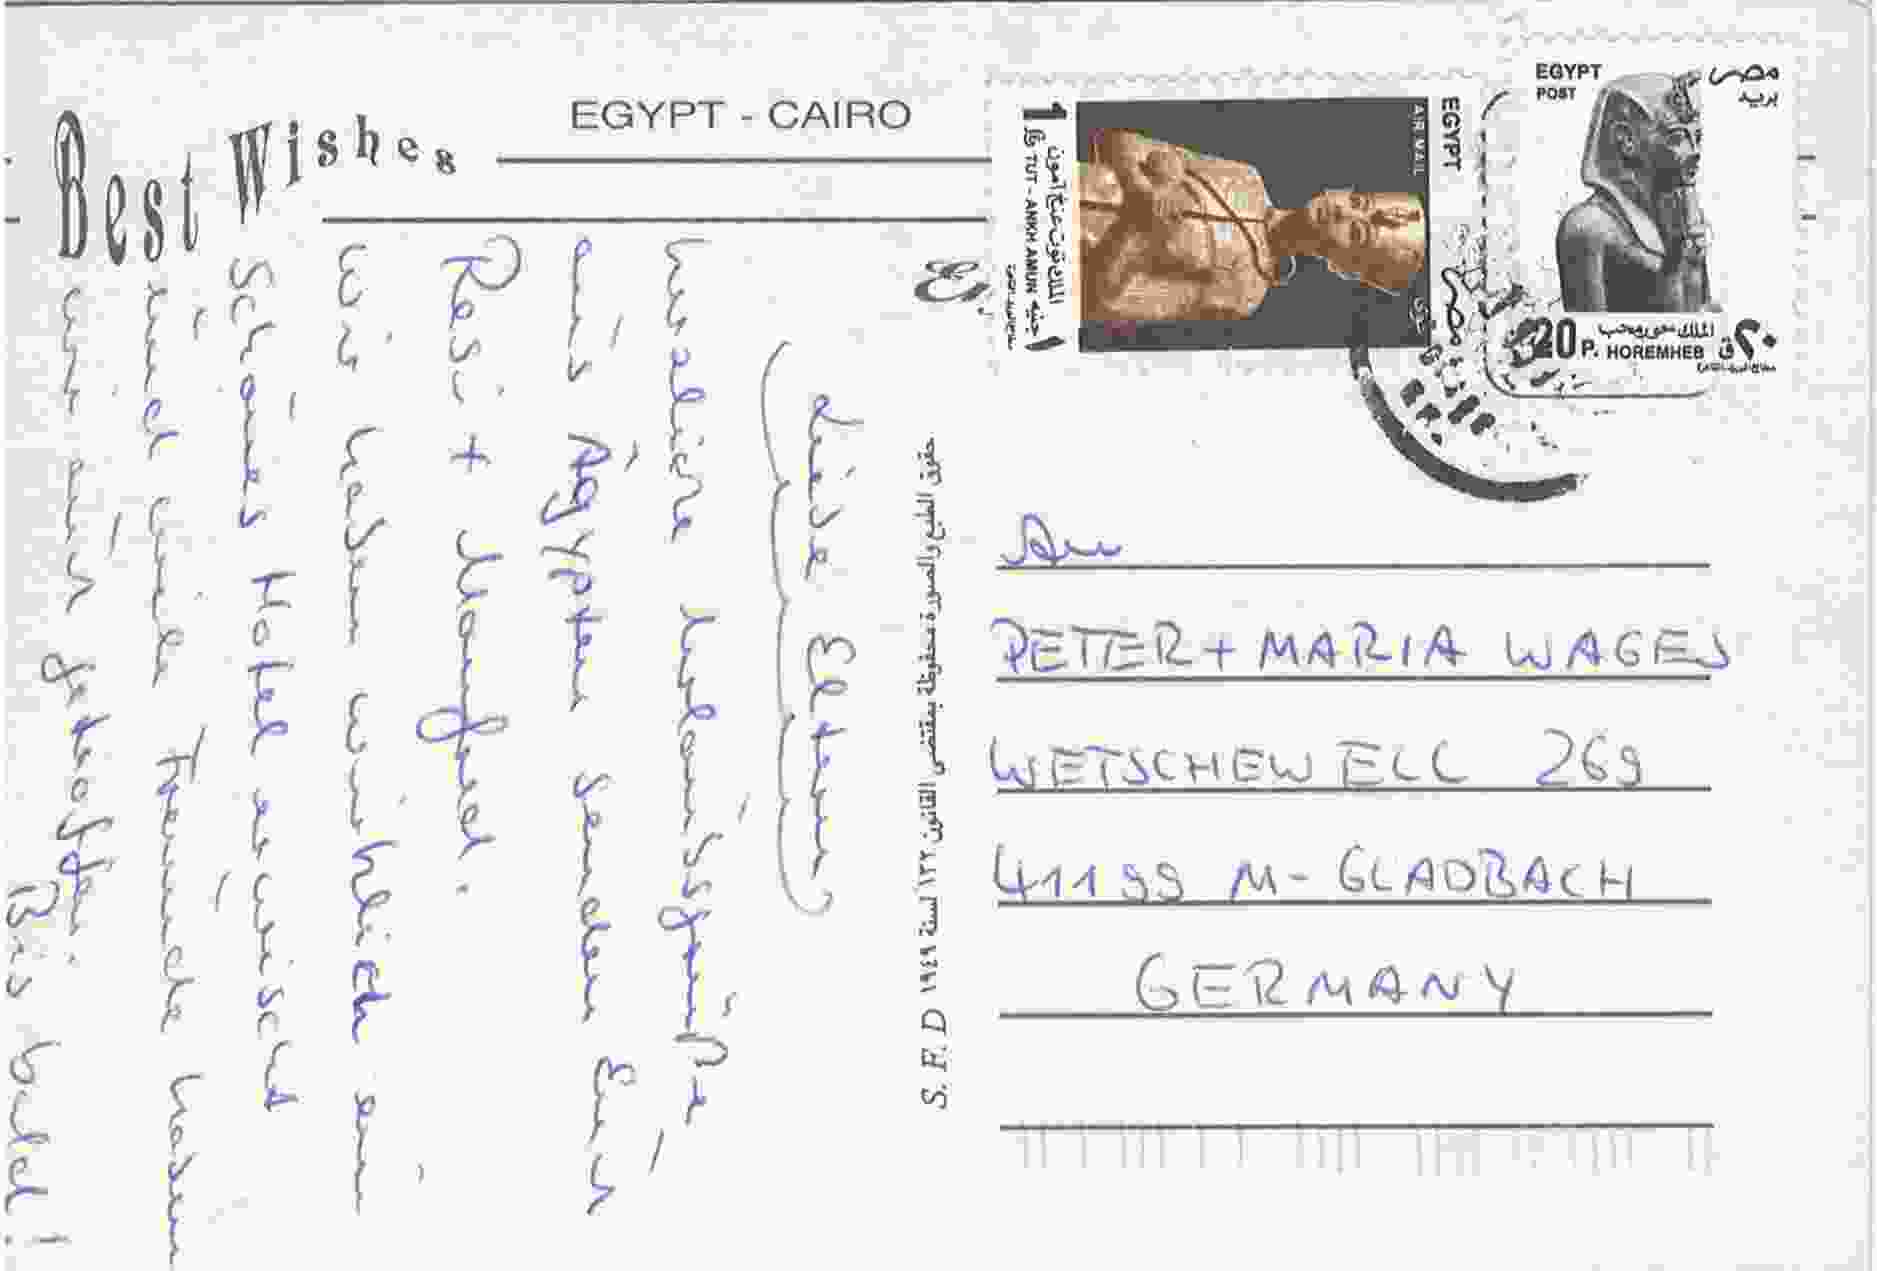 Best Wishes
EGYPT - CAIRO
Liebe Eltern
herzliche Urlaubsgrüße
aus Ägypten senden Euch
Rosi + Manfred.
Wir haben wirklich ein
Schönes Hotel erwischt
und viele Freunde haben
wir auch getroffen.
Bis bald!
S. F. D حقوق الطبع والصورة محفوظة بمقتضى القانون ١٣٢ لسنة ١٩٤٩
EGYPT
AIR MAIL
1 TUT - ANKH AMUN
الملك توت عنخ آمون
١ جنيه
مصر
EGYPT
POST
مصر
بريد
20 P. HOREMHEB ٢٠ ق
الملك حور محب
An
PETER + MARIA WAGES
WETSCHEWELL 269
41199 M-GLADBACH
GERMANY